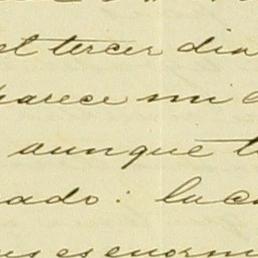 el tercer dia
parece mi
aunque
ado: la
es enorm